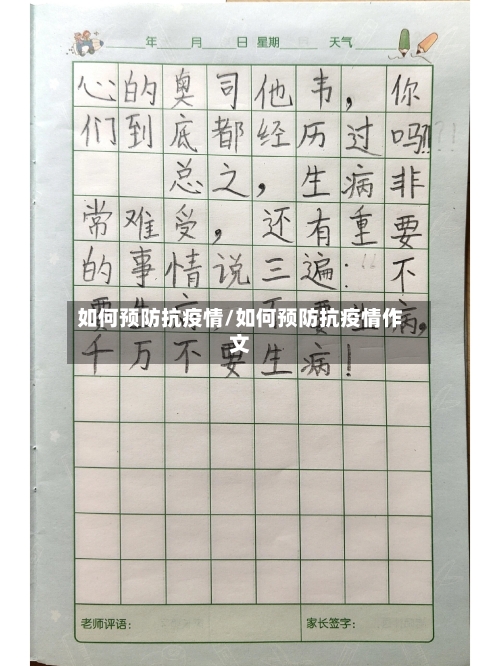 年 月 日 星期 天气
心的奥司他韦，你
们到底都经历过吗!!?!
总之，生病非
常难受，还有重要
的事情说三遍：“不
要生病，不要生病，
如何预防抗疫情/如何预防抗疫情作
文
千万不要生病！
老师评语： 家长签字：